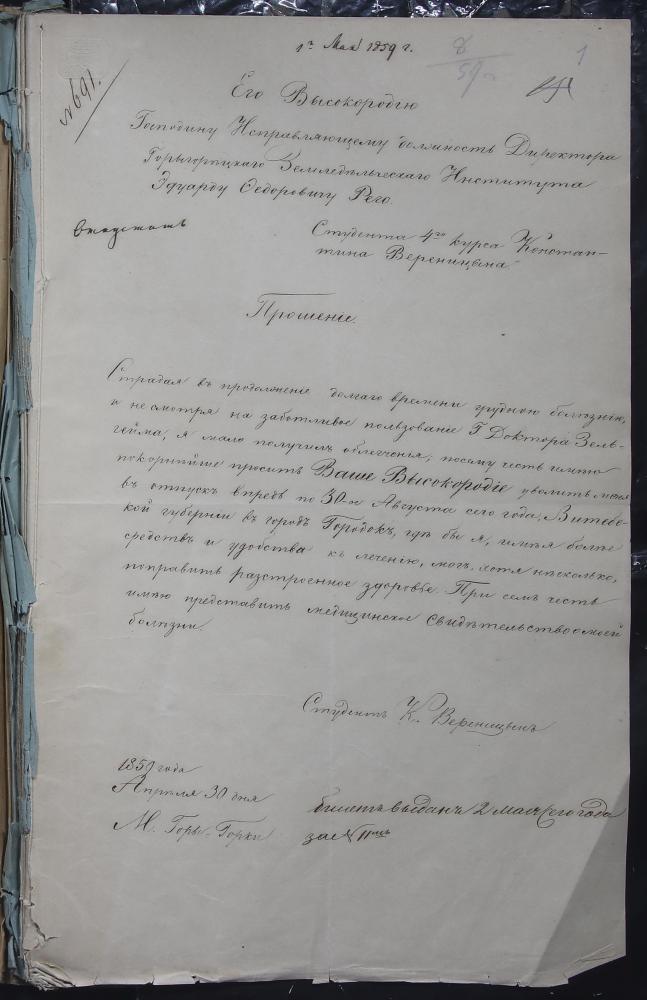 1го Мая 1859 г.
8
59
1
№691.
Его Высокородію
Господину Исправляющему должность Директора
Горыгорѣцкаго Земледѣльческаго Института
Эдуарду Ѳедоровичу Рего.
Студента 4го курса Констан-
тина Вереницына.
Прошеніе.
Страдая въ продолженіе долгаго времени грудною болѣзнію,
и несмотря на заботливое пользованіе Г. Доктора Зель-
гейма, я мало получилъ облегченія; посему честь имѣю
покорнѣйше просить Ваше Высокородіе уволить меня
въ отпускъ впредь по 30-е Августа сего года, Витебс-
кой губерніи въ городъ Городокъ, гдѣ бы я, имѣя болѣе
средствъ и удобства къ леченію, могъ, хотя нѣсколько,
поправить разстроенное здоровье. При семъ честь
имѣю представить медицинское свидѣтельство о моей
болѣзни.
Студентъ К. Вереницынъ
1859 года
Апрѣля 30 дня
М. Горы-Горки
билетъ выданъ 2 мая сего года
за №